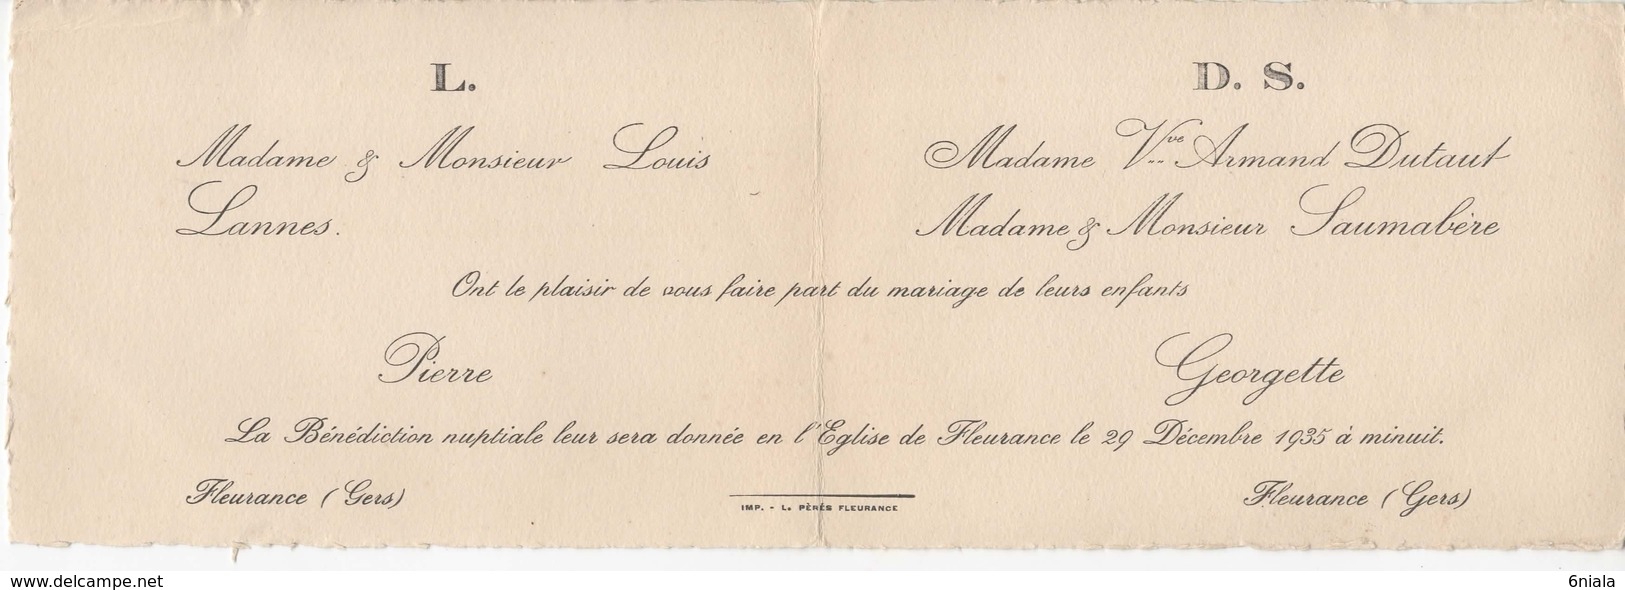 L.
Madame & Monsieur Louis
Lannes.
D. S.
Madame Vve Armand Dutaut
Madame & Monsieur Saumabère
Ont le plaisir de vous faire part du mariage de leurs enfants
Pierre
Georgette
La Bénédiction nuptiale leur sera donnée en l'Eglise de Fleurance le 29 Décembre 1935 à minuit.
Fleurance (Gers)
IMP. - L. PÈRÉS FLEURANCE
Fleurance (Gers)
www.delcampe.net
6niala